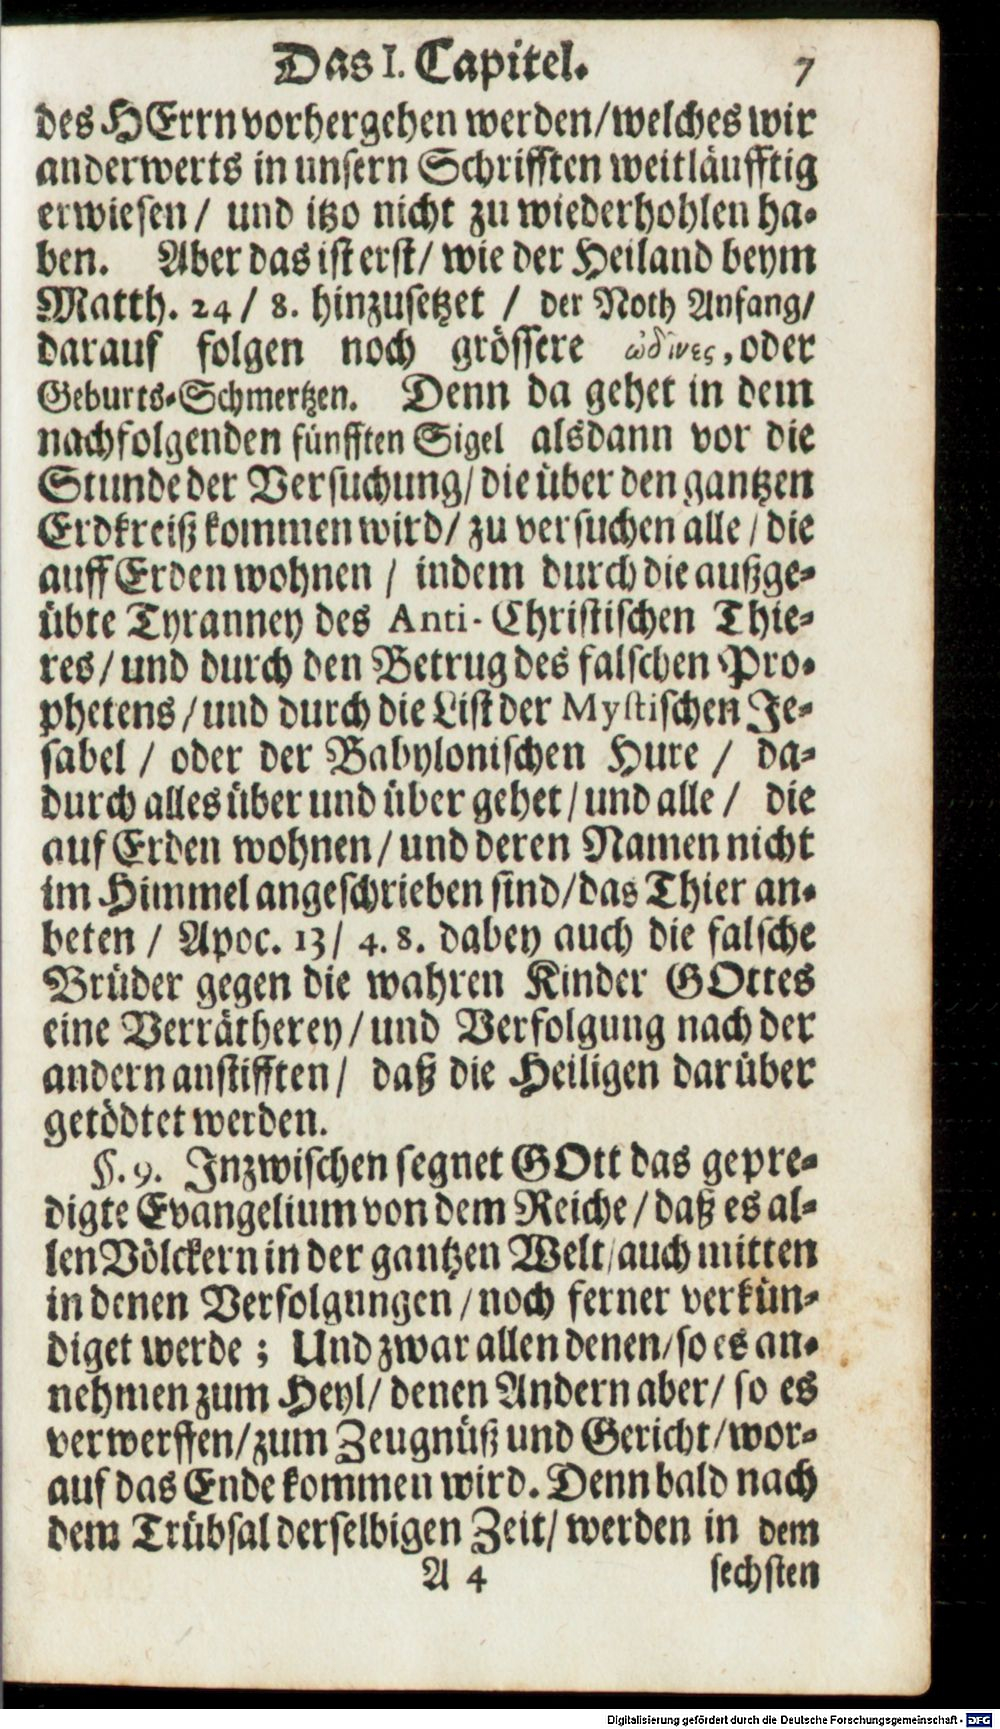 Das I. Capitel. 7
des HErrn vorhergehen werden/welches wir
anderwerts in unsern Schrifften weitläufftig
erwiesen/ und itzo nicht zu wiederhohlen ha-
ben. Aber das ist erst/ wie der Heiland beym
Matth. 24/ 8. hinzusetzet / der Noth Anfang/
darauf folgen noch grössere ὠδῖνες, oder
Geburts-Schmertzen. Denn da gehet in dem
nachfolgenden fünfften Sigel alsdann vor die
Stunde der Versuchung/ die über den gantzen
Erdkreiß kommen wird/ zu versuchen alle / die
auff Erden wohnen / indem durch die außge-
übte Tyranney des Anti-Christischen Thie-
res/ und durch den Betrug des falschen Pro-
phetens/ und durch die List der Mystischen Je-
sabel / oder der Babylonischen Hure / da-
durch alles über und über gehet/ und alle / die
auf Erden wohnen/ und deren Namen nicht
im Himmel angeschrieben sind/das Thier an-
beten / Apoc. 13/ 4. 8. dabey auch die falsche
Brüder gegen die wahren Kinder GOttes
eine Verrätherey/ und Verfolgung nach der
andern anstifften/ daß die Heiligen darüber
getödtet werden.
§. 9. Inzwischen segnet GOtt das gepre-
digte Evangelium von dem Reiche/ daß es al-
len Völckern in der gantzen Welt/auch mitten
in denen Verfolgungen/noch ferner verkün-
diget werde; Und zwar allen denen/so es an-
nehmen zum Heyl/ denen Andern aber/ so es
verwerffen/zum Zeugnüß und Gericht/wor-
auf das Ende kommen wird. Denn bald nach
dem Trübsal derselbigen Zeit/ werden in dem
A 4 sechsten
Digitalisierung gefördert durch die Deutsche Forschungsgemeinschaft - DFG